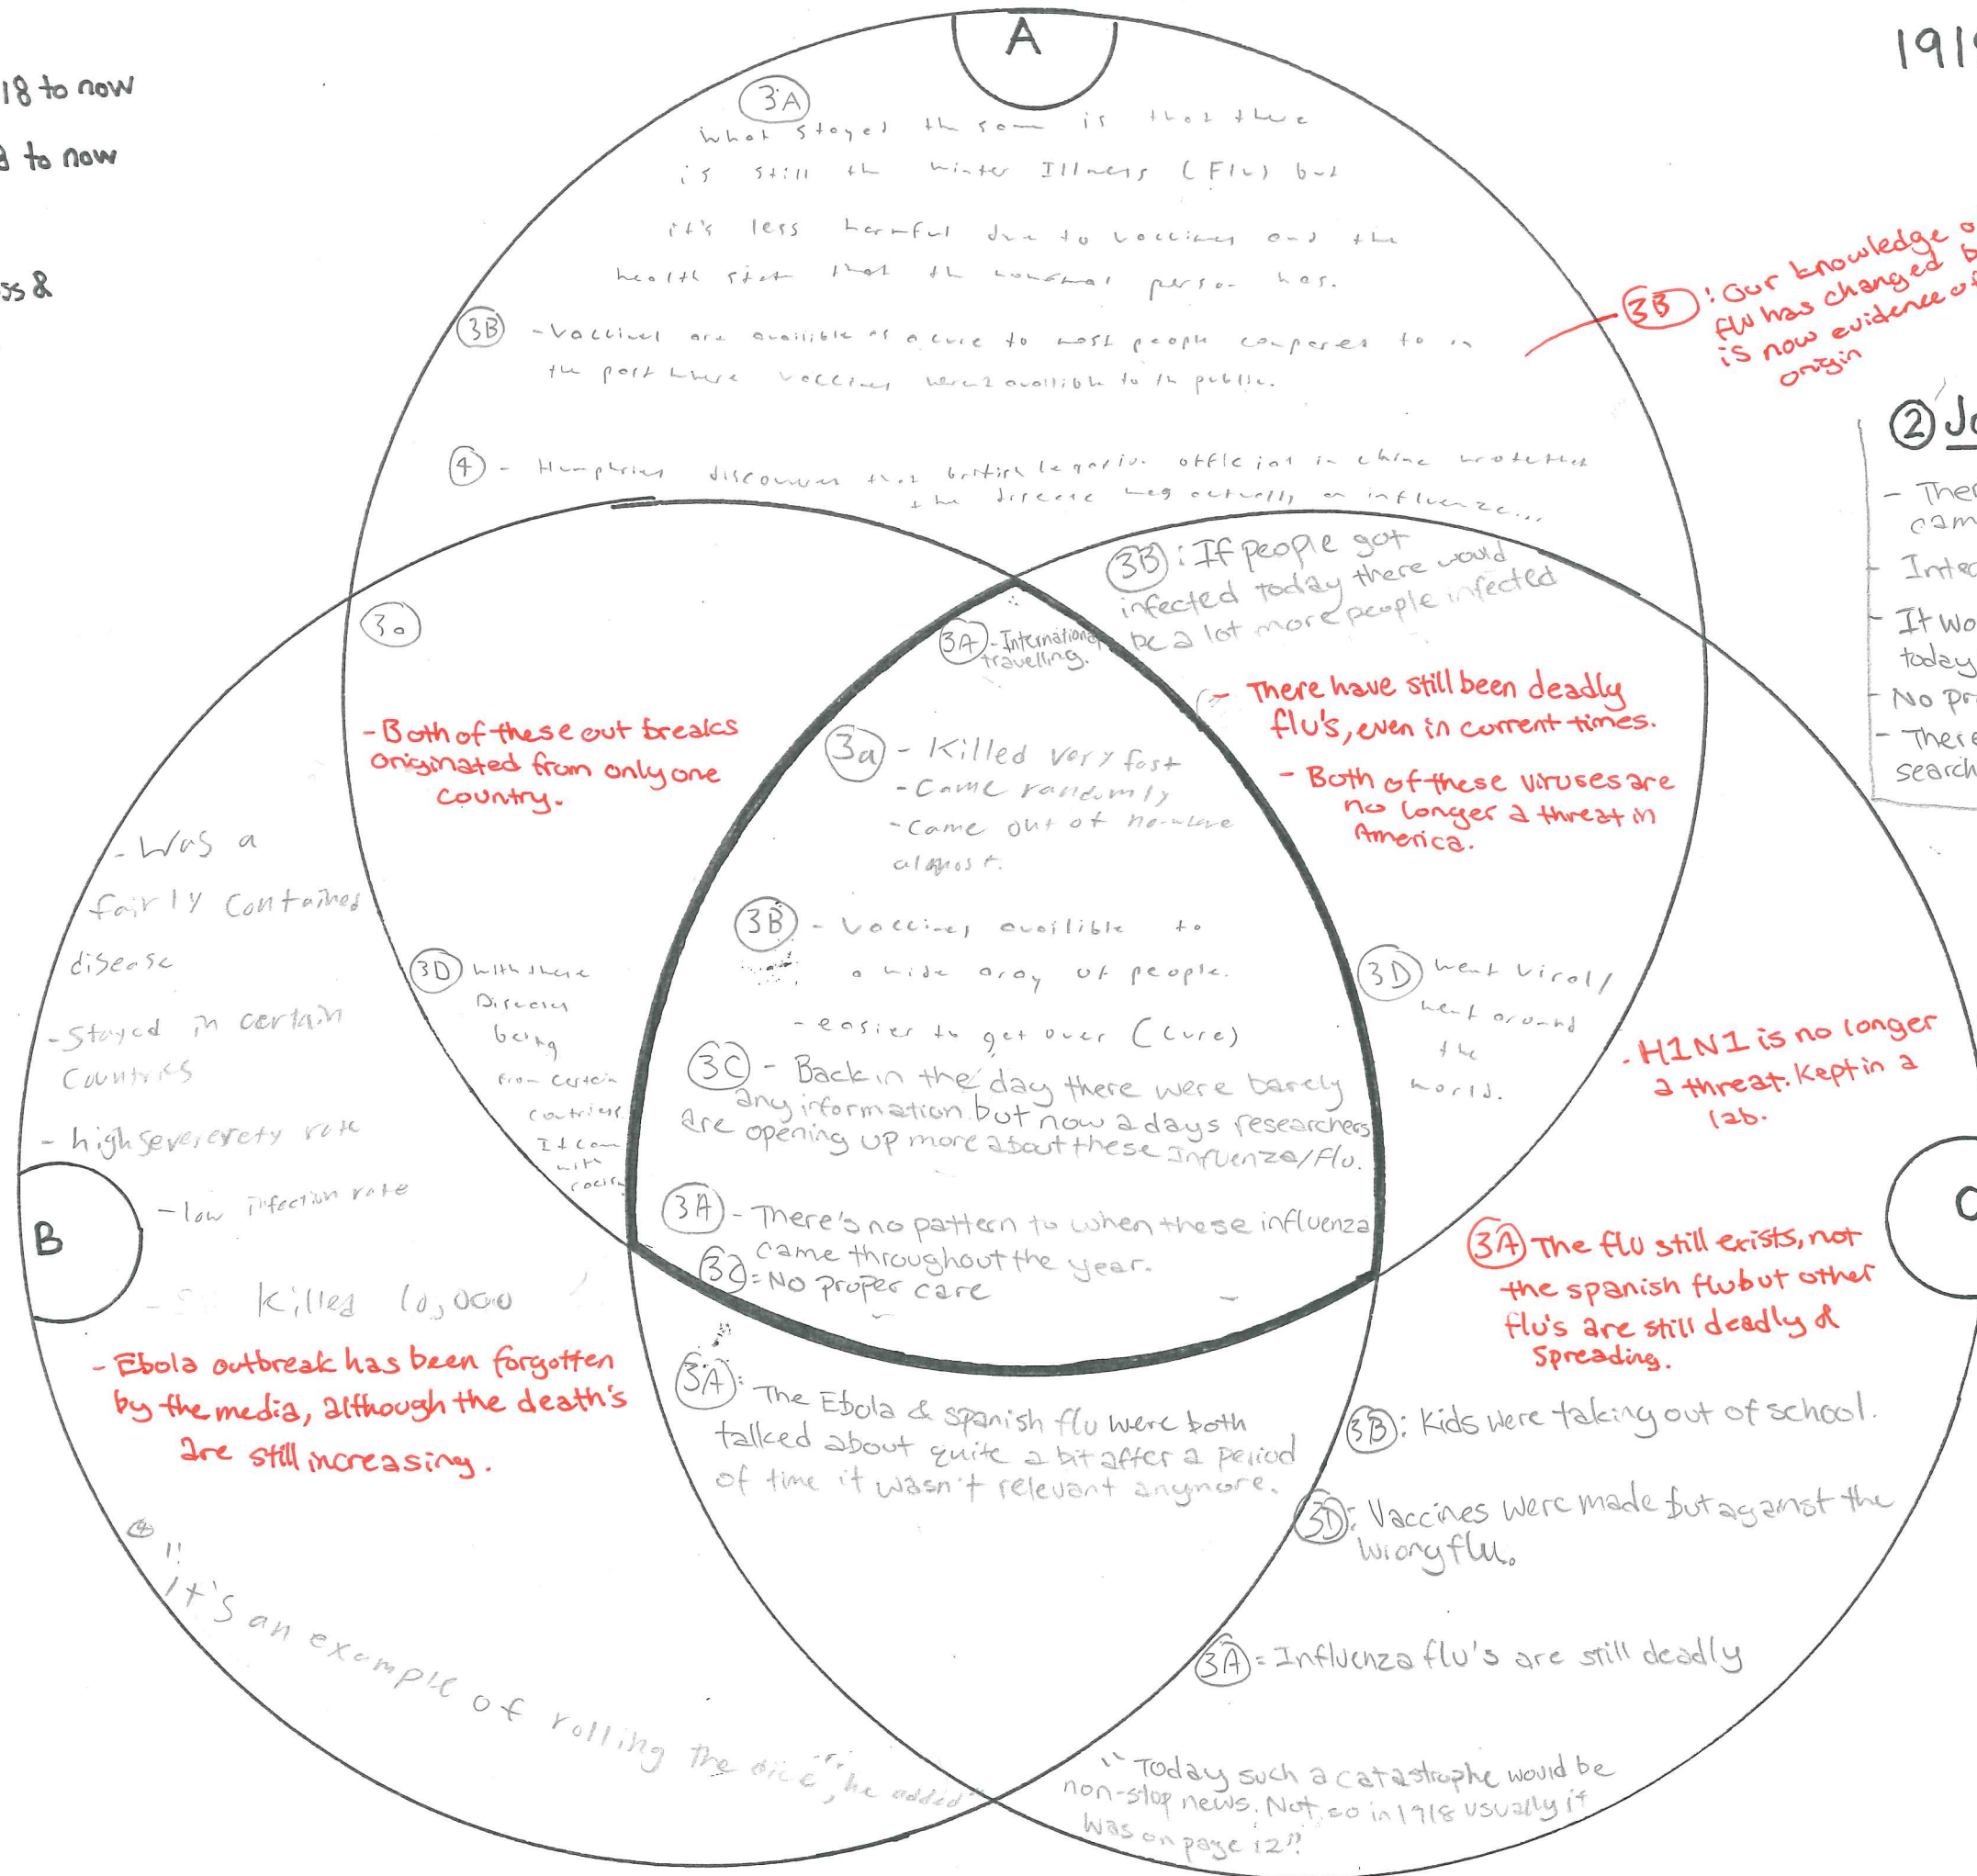 18 to now
to now
ss &
A
191
3A
what stayed the same is that there
is still the winter Illness (Flu) but
it's less harmful due to vaccines and the
health state that the person has.
3B - Vaccines are availible as a cure to most people compared to in
the past where vaccines weren't availible to the public.
4 - Humphries discovers that british legation official in china wrote that
the disease was actually an influenza...
3B : Our knowledge o
flu has changed b
is now evidence of
origin
2 Jo
- Ther
cam
- Inte
- It wo
today
- No pr
- There
search
3a
- Both of these out breaks
originated from only one
country.
3B : If people got
infected today there would
be a lot more people infected
3A - International
travelling.
- There have still been deadly
flu's, even in current times.
- Both of these viruses are
no longer a threat in
America.
3a - Killed very fast
- Came randomly
- Came out of nowhere
almost.
3B - Vaccines availible to
a wide aray of people.
- easier to get over (cure)
3C - Back in the day there were barely
any information but now a days researchers
are opening up more about these Influenza/Flu.
3A - There's no pattern to when these influenza
came throughout the year.
3C = No proper care
3D with these
Diseases
being
from certain
contries
It came
with
racism
3D went viral/
went around
the
world.
- Was a
fairly contained
disease
- Stayed in certain
Countries
- high severerety rate
- low infection rate
B
Killed 10,000
- Ebola outbreak has been forgotten
by the media, although the death's
are still increasing.
4 "It's an example of rolling the dice", he added"
3A : The Ebola & spanish flu were both
talked about quite a bit after a period
of time it wasn't relevant anymore.
- H1N1 is no longer
a threat. Kept in a
lab.
C
3A The flu still exists, not
the spanish flu but other
flu's are still deadly &
spreading.
3B : Kids were taking out of school.
3D : Vaccines were made but against the
wrong flu.
3A = Influenza flu's are still deadly
"Today such a catastrophe would be
non-stop news. Not so in 1918 usually it
was on page 12"